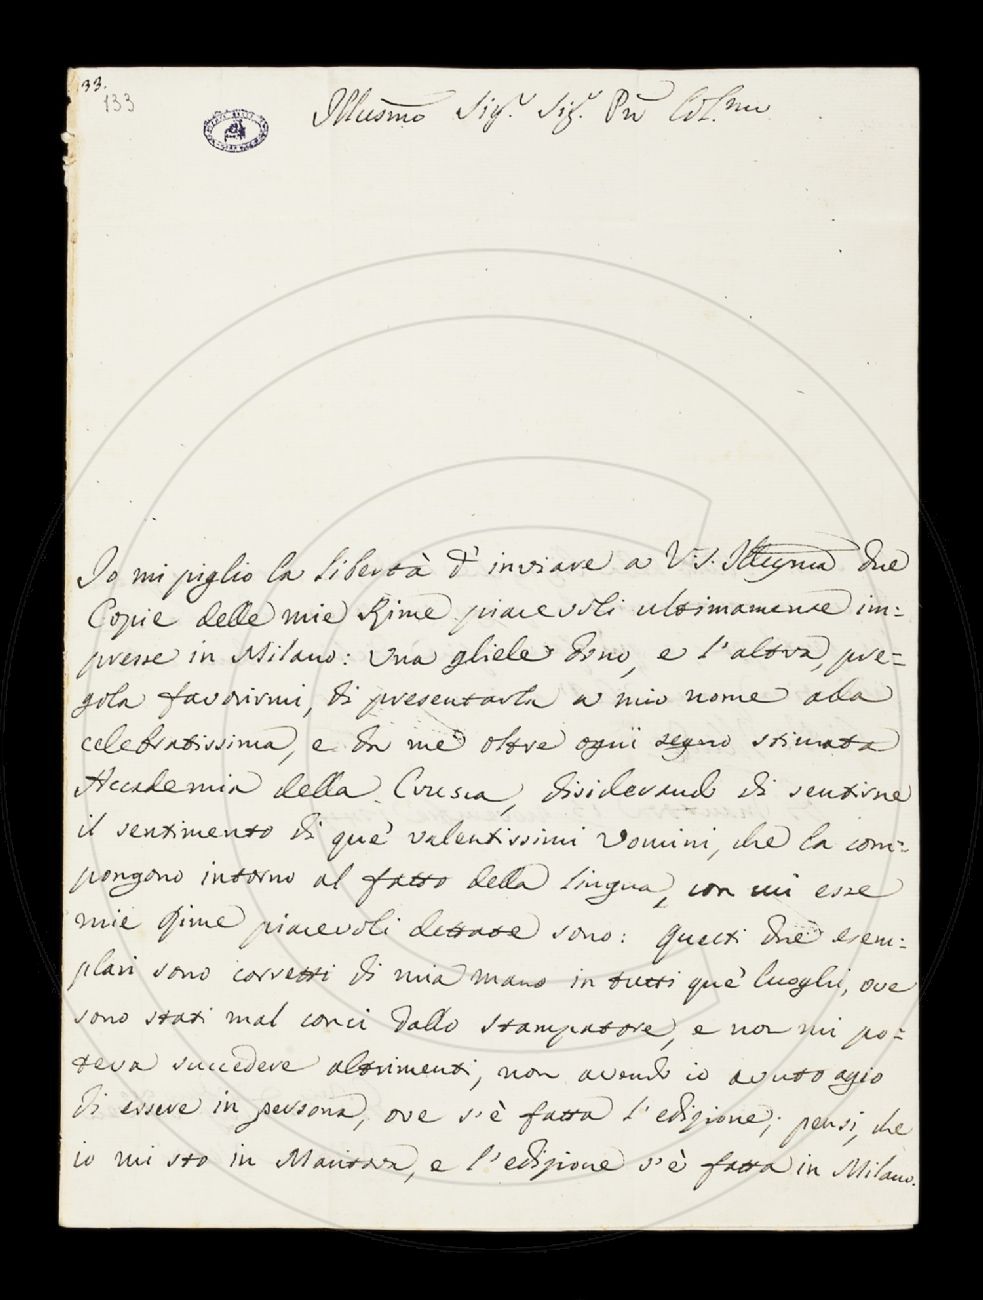 33.
133
Illusmo Sigr. Sigr. Pn Colmo
Io mi piglio la libertà d' inviare a V. S. Illusma due
Copie delle mie Rime piacevoli ultimamente im=
presse in Milano: Una gliele dono, e l'altra, pre=
gola favorirmi, di presentarla a mio nome alla
celebratissima, e da me oltre ogni segno stimata
Accademia della Crusca, disiderando di sentirne
il sentimento di què valentissimi Uomini, che la com=
pongono intorno al fatto della lingua, con cui esse
mie Rime piacevoli dettate sono: Questi due esem=
plari sono corretti di mia mano in tutti què luoghi, ove
sono stati mal conci dallo stampatore, e non mi po=
teva succedere altrimenti, non avendo io avuto agio
di essere in persona, ove s'è fatta l'edizione; pensi, che
io mi sto in Mantova, e l'edizione s'è fatta in Milano.